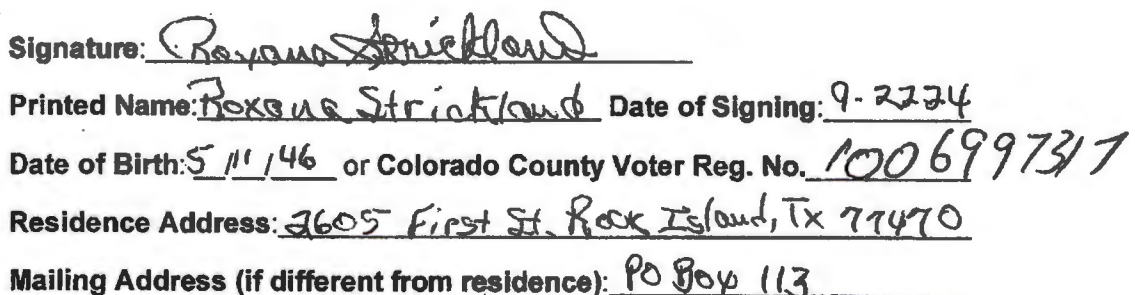 Signature: Roxana Strickland
Printed Name: Roxana Strickland Date of Signing: 9-2224
Date of Birth: 5/11/46 or Colorado County Voter Reg. No. 1006997317
Residence Address: 2605 First St. Rock Island, Tx 77470
Mailing Address (if different from residence): PO Box 113